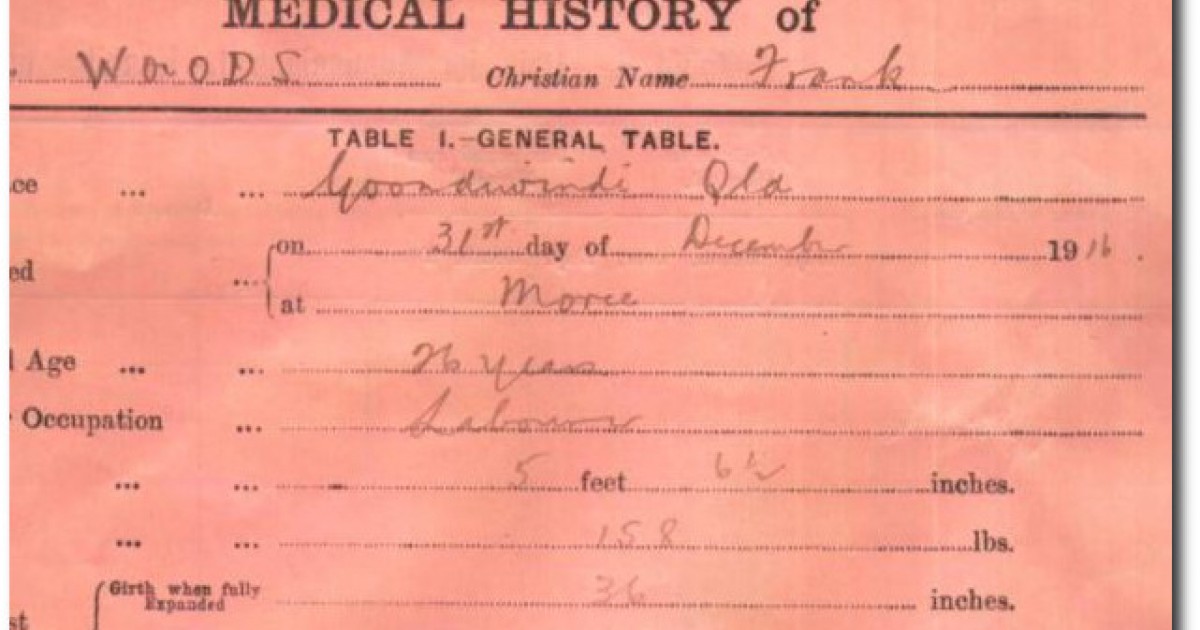 MEDICAL HISTORY of
WOODS Christian Name Frank
TABLE I.—GENERAL TABLE.
ce ... ... Goondiwindi Qld
on 31st day of December 1916.
ed ...
at Moree
Age ... ... 26 years
Occupation ... Labourer
... ... 5 feet 6½ inches.
... ... 158 lbs.
Girth when fully
Expanded 36 inches.
st